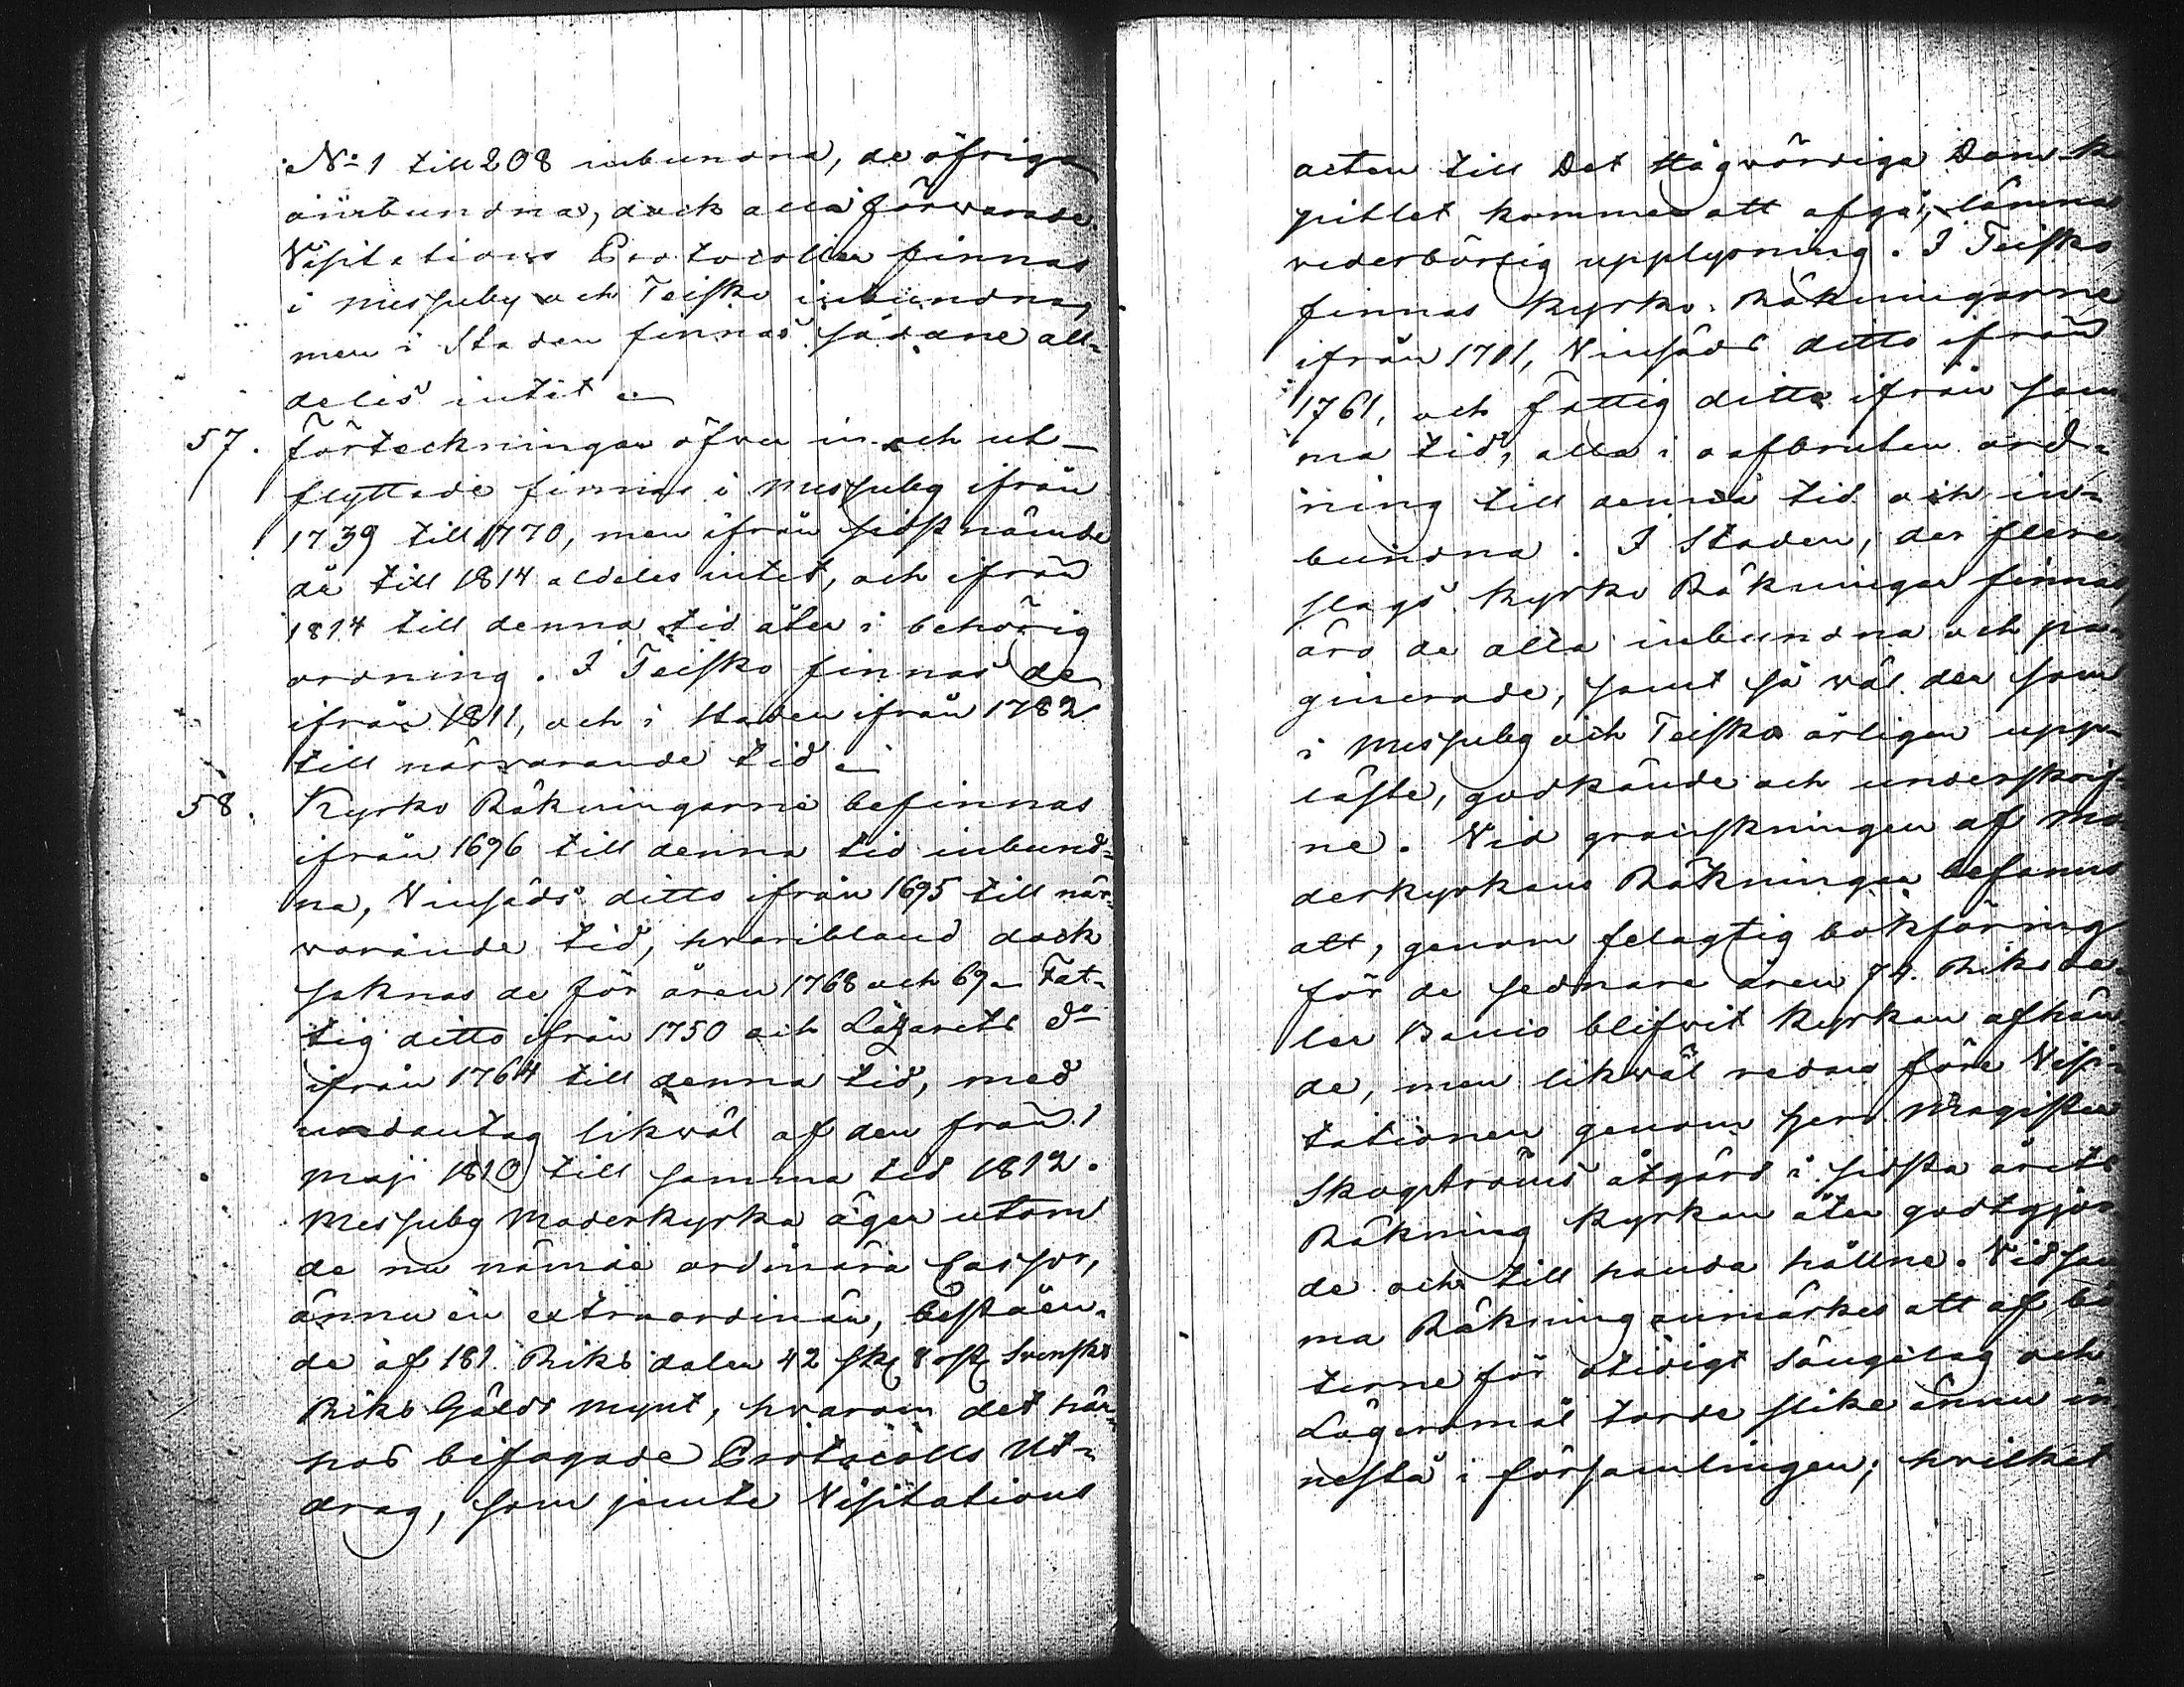 No 1 till 208 inbundna, de öfriga
oinbundna, dock alla förwarade.
Visitations Protocoller finnas
i Messuby och Teisko inbundna,
men i Staden finnas sådane all-
deles intet.
57. Förteckningar öfwer in och ut-
flyttade finnas i Messuby ifrån
1739 till 1770, men ifrån sidstnämde
år till 1814 aldeles intet, och ifrån
1814 till denna tid åter i behörig
ordning. I Teisko finnas de
ifrån 1811, och i Staden ifrån 1782
till närvarande tid.
58. Kyrko Räkningarne befinnas
ifrån 1696 till denna tid inbund-
na, Vinsäds ditto ifrån 1695 till när-
warande tid, hvaribland dock
saknas de för åren 1768 och 69. Fat-
tig ditto ifrån 1750 och Lazarets do
ifrån 1764 till denna tid, med
undantag likwäl af den från 1
Maji 1810 till samma tid 1812.
Messuby Moderkyrka äger utom
de nu nämde ordinära Cassor,
ännu en extraordinär, beståen-
de af 181 Riks daler 42 sk 8 rst Svenskt
Riks Gälds Mynt, hwarom det här-
hos bifogade Protocolls Ut-
drag, som jemte Visitations
acten till Det Högwördiga Dom-Ka
pitlet kommer att afgå, lämna
wederbörlig upplysning. I Teisko
finnas Kyrko-Räkningarne
ifrån 1701, Vinsäds ditto ifrån
1761, och Fattig ditto ifrån sam
ma tid, alla i oafbruten ord-
ning till denna tid och in-
bundna. I Staden, der flere
slags Kyrko Räkningar finnas,
äro de alla inbundna och pa-
ginerade, samt så wäl der som
i Messuby och Teisko årligen upp-
läste, godkände och underskrif-
ne. Vid granskningen af Mo
derkyrkans Räkningar befanns
att, genom felagtig bokföring
för de sednare åren 74 Riksda-
ler Banco blifwit Kyrkan afhän
de, men likwäl redan före Visi-
tationen genom Herr Magister
Skogströms åtgärd i sidsta årets
Räkning Kyrkan åter godtgjor
de och till handa hållne. Vid sam
ma Räkning anmärkes att af bö
terne för otidigt Sängelag och
Lägersmål torde slike ännu in
nestå i församlingen; hvilket